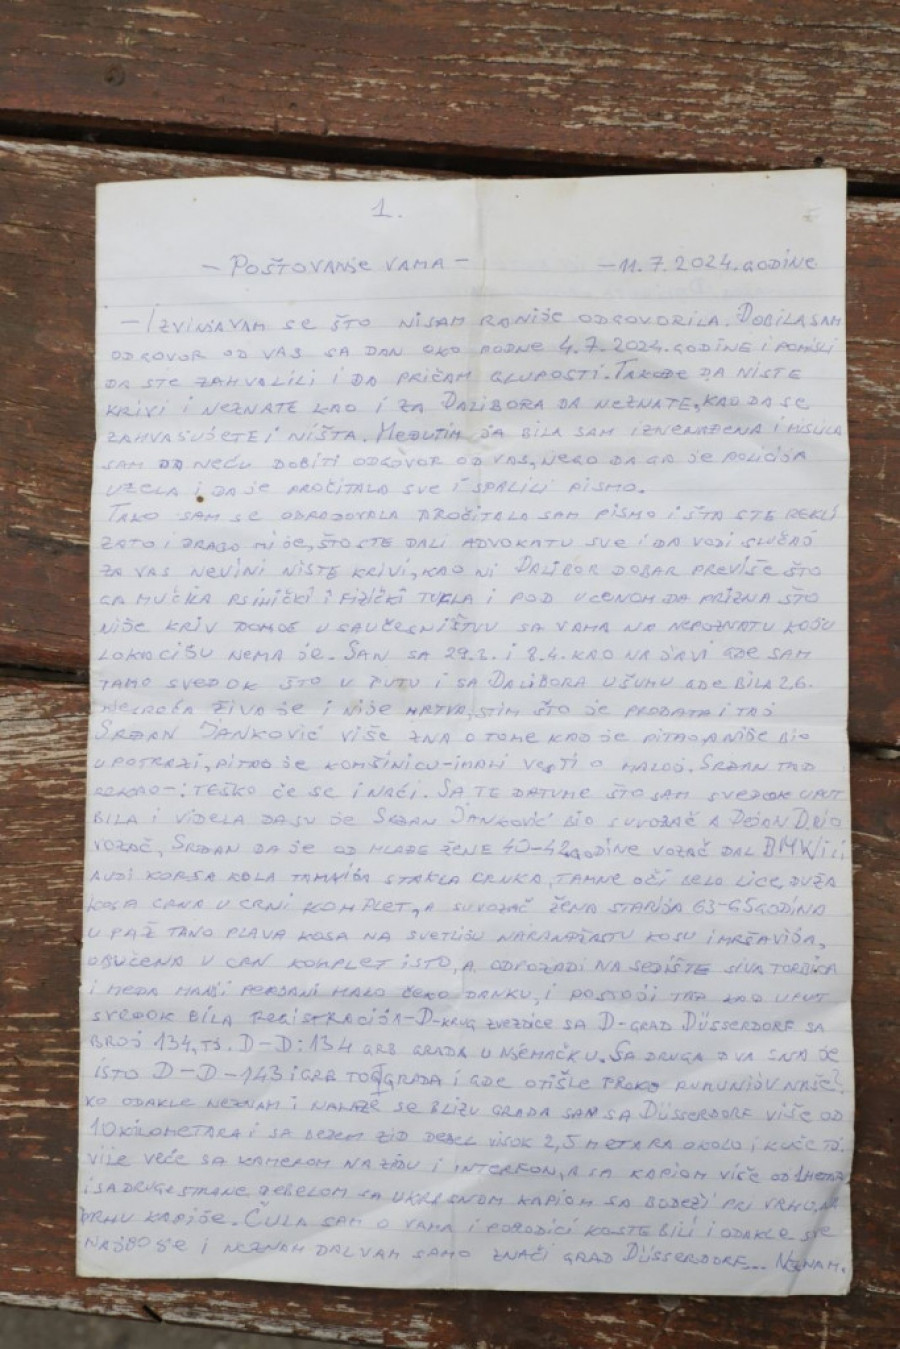 1.
- POŠTOVANJE VAMA - - 11.7.2024. GODINE
- IZVINJAVAM SE ŠTO NISAM RANIJE ODGOVORILA. DOBILA SAM
ODGOVOR OD VAS SA DAN OKO PODNE 4.7.2024. GODINE I POMISLI
DA STE ZAHVALILI I DA PRIČAM GLUPOSTI. TAKOĐE DA NISTE
KRIVI I NEZNATE KAO I ZA DALIBORA DA NEZNATE, KAO DA SE
ZAHVALJUJETE I NIŠTA. MEĐUTIM JA BILA SAM IZNENAĐENA I MISLILA
SAM DA NEĆU DOBITI ODGOVOR OD VAS, NEGO DA GA JE POLICIJA
UZELA I DA JE PROČITALA SVE I SPALILI PISMO.
TAKO SAM SE OBRADOVALA PROČITALA SAM PISMO I ŠTA STE REKLI
ZATO I DRAGO MI JE, ŠTO STE DALI ADVOKATU SVE I DA VODI SLUČAJ
ZA VAS NEVINI NISTE KRIVI, KAO NI DALIBOR DOBAR PREVIŠE ŠTO
GA MUČILA PSIHIČKI I FIZIČKI TUKLA I POD UCENOM DA PRIZNA ŠTO
NIJE KRIV U SAUČESNIŠTVU SA VAMA NA NEPOZNATU KOJU
LOKACIJU NEMA JE. SAN SA 29.3. I 8.4. KAO NA JAVI GDE SAM
TAMO SVEDOK ŠTO U PUTU I SA DALIBORA U ŠUMU GDE BILA 26.
ŽIVA JE I NIJE MRTVA, STIM ŠTO JE PRODATA I TAJ
SRĐAN JANKOVIĆ VIŠE ZNA O TOME KAO JE PITAO, A NIJE BIO
U POTRAZI, PITAO JE KOMŠINICU - IMALI VESTI O MALOJ. SRĐAN TAD
REKAO -: TEŠKO ĆE SE I NAĆI. SA TE DATUME ŠTO SAM SVEDOK UPUT
BILA I VIDELA DA SU JE SRĐAN JANKOVIĆ BIO SUVOZAČ A DEJAN D. BIO
VOZAČ, SRĐAN DA JE OD MLAĐE ŽENE 40-42 GODINE VOZAČ DAL BMW ILI
AUDI KORSA KOLA TAMNIJA STAKLA CRNKA, TAMNE OČI BELO LICE, DUŽA
KOSA CRNA U CRNI KOMPLET, A SUVOZAČ ŽENA STARIJA 63-65 GODINA
PLAVA KOSA NA SVETLIJU NARANDŽASTU KOSU I MRŠAVIJA,
OBUČENA U CRN KOMPLET ISTO, A ODPOZADI NA SEDIŠTE SIVA TORBICA
I MEDA MANJI MALO I POSTOJI TAD KAO UPUT
SVEDOK BILA REGISTRACIJA - D - KRUG ZVEZDICE SA D - GRAD DÜSSERDORF SA
BROJ 134, TJ. D - D: 134 GRB GRADA U NJEMAČKU. SA DRUGA DVA SNA JE
ISTO D - D - 143 I GRB TOG GRADA I GDE OTIŠLE PREKO
KO ODAKLE NEZNAM I NALAZE SE BLIZU GRADA SAM SA DÜSSERDORF VIŠE OD
10 KILOMETARA I SA BEDEM ZID DEBEL VISOK 2,5 METARA OKOLO I KUĆE
VIŠE VEĆE SA KAMEROM NA ZIDU I INTERFON, A SA KAPIOM VIŠE OD 1 METAR
I SA DRUGE STRANE DEBELOM SA UKRASNOM KAPIOM SA BODEŽI PRI VRHO, NA
VRHU KAPIJE. ČULA SAM O VAMA I PORODICI KO STE BILI I ODAKLE STE
NAJBOLJE I NEZNAM DAL VAM SAMO ZNAČI GRAD DÜSSERDORF... NEZNAM.